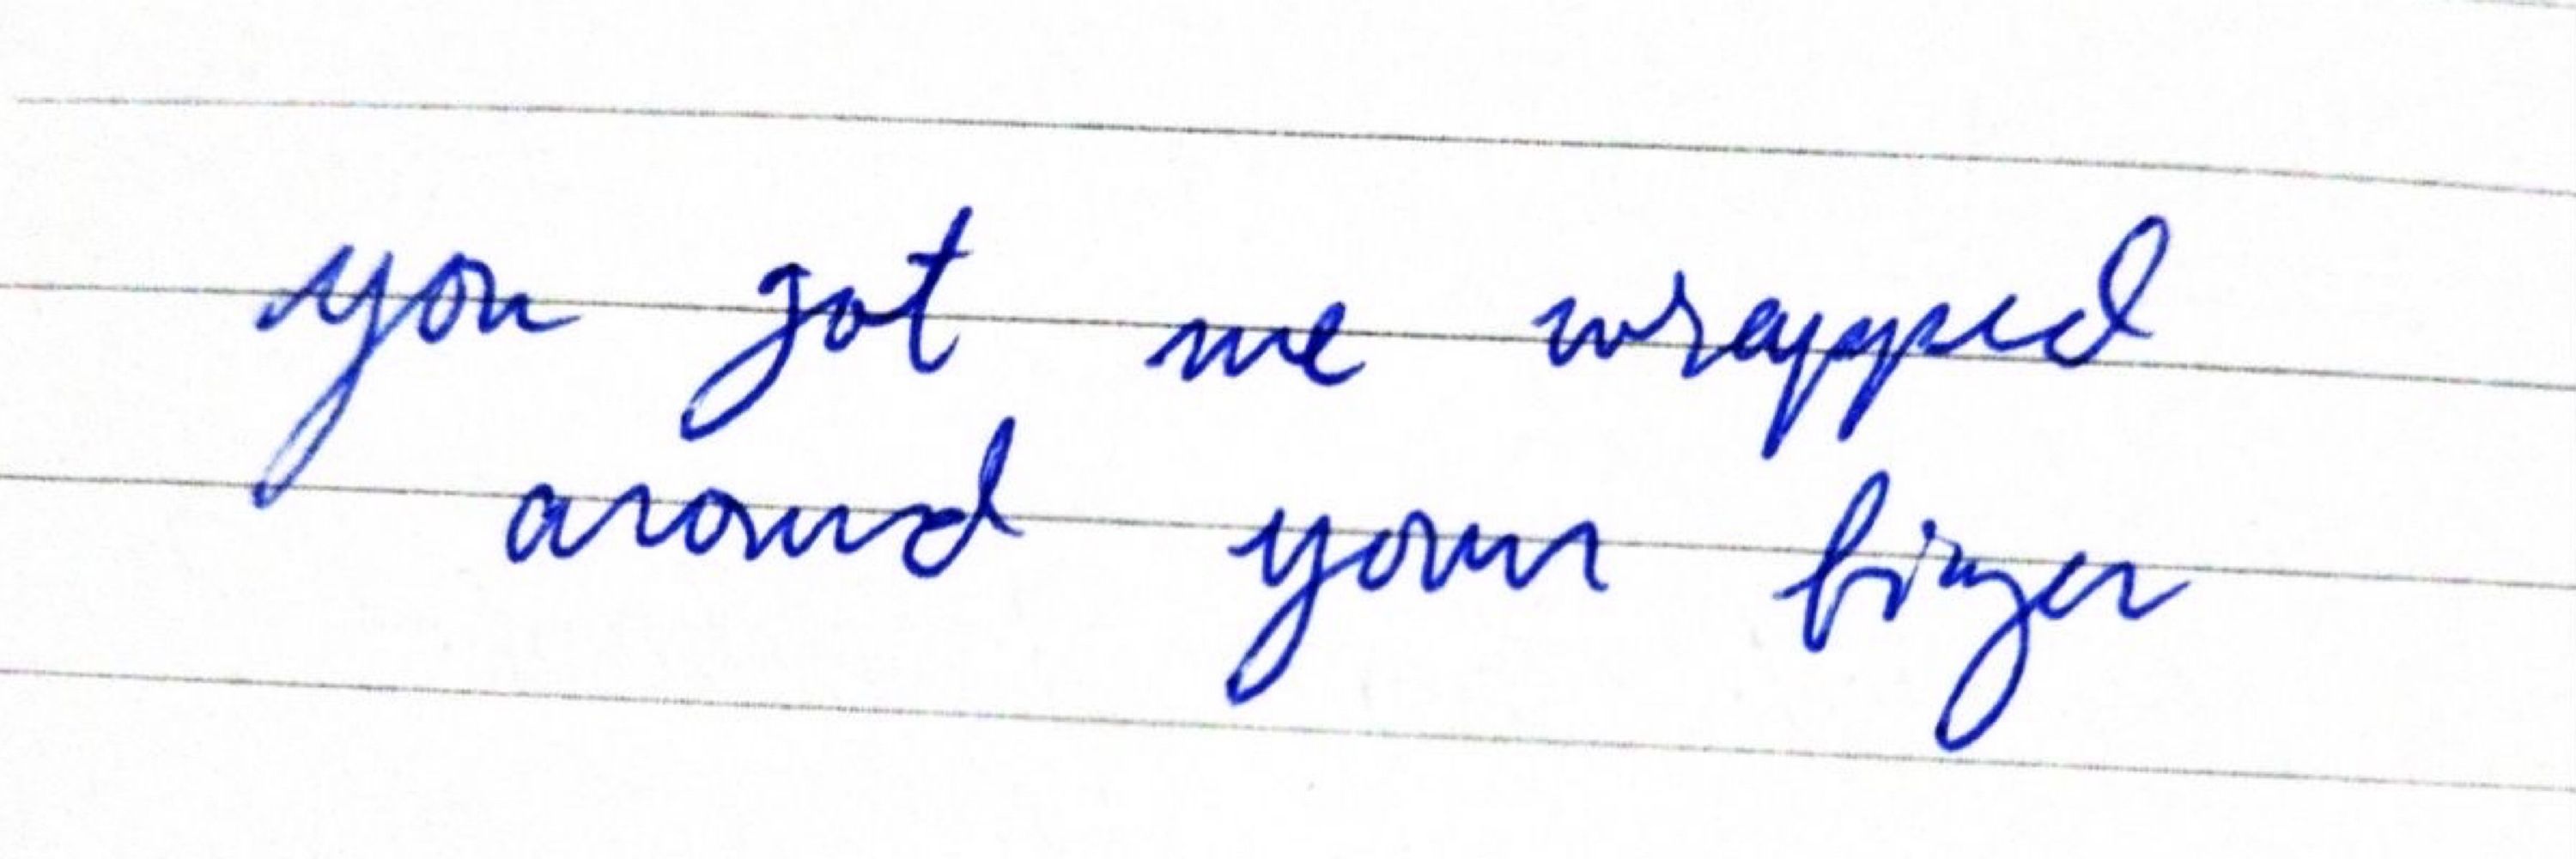 you got me wrapped
around your finger